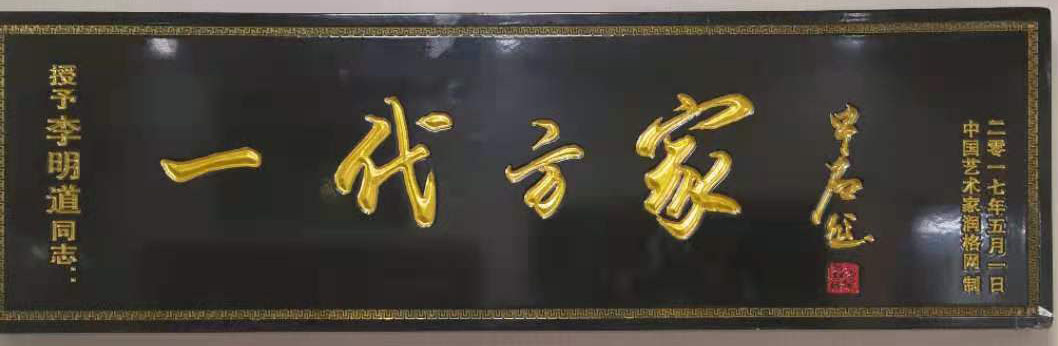 授予李明道同志：
一代方家
二零一七年五月一日
中国艺术家润格网 制